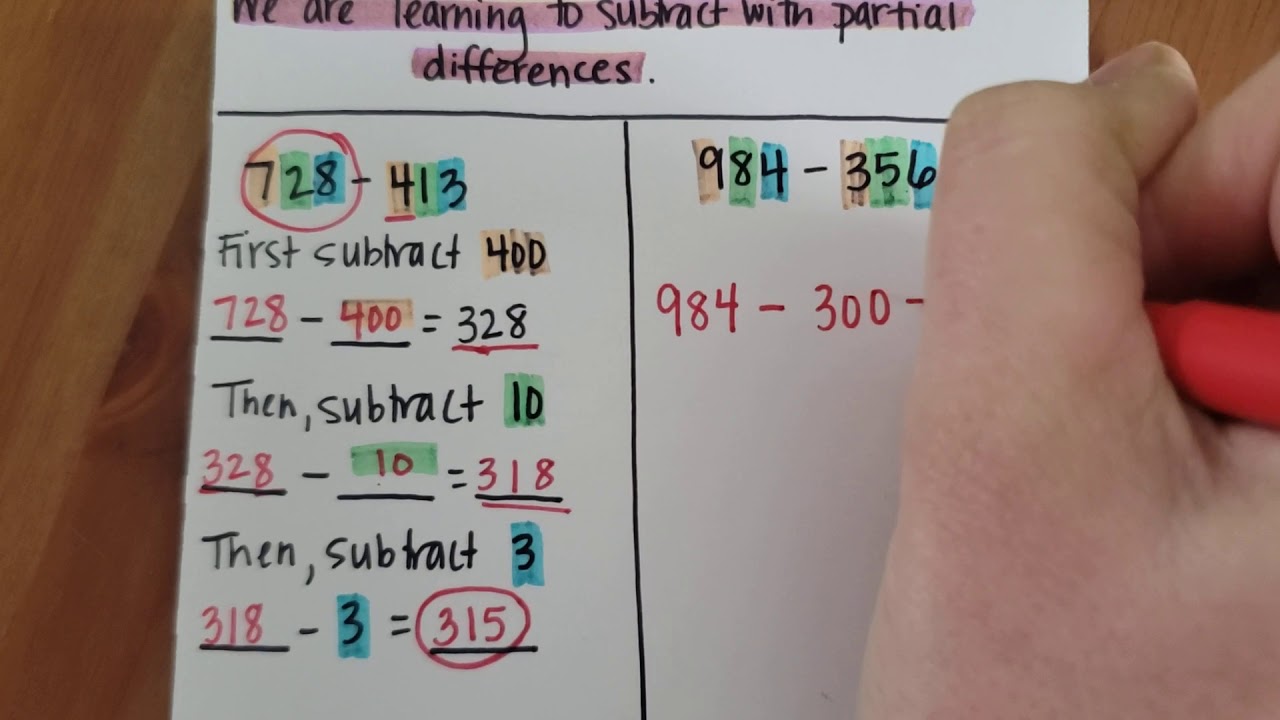 We are learning to subtract with partial
differences.
728 - 413
First subtract 400
728 - 400 = 328
Then, subtract 10
328 - 10 = 318
Then, subtract 3
318 - 3 = 315
984 - 356
984 - 300 -